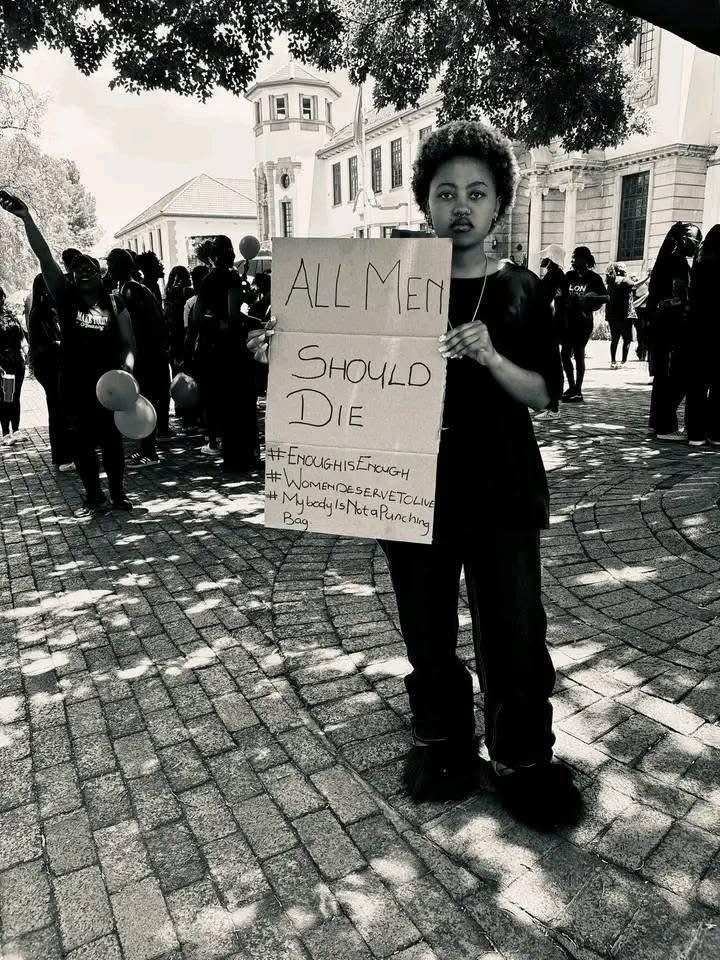 ALL MEN
SHOULD
DIE
#ENOUGHISENOUGH
#WOMENDESERVETOLIVE
# MybodyIsNotaPunching
Bag